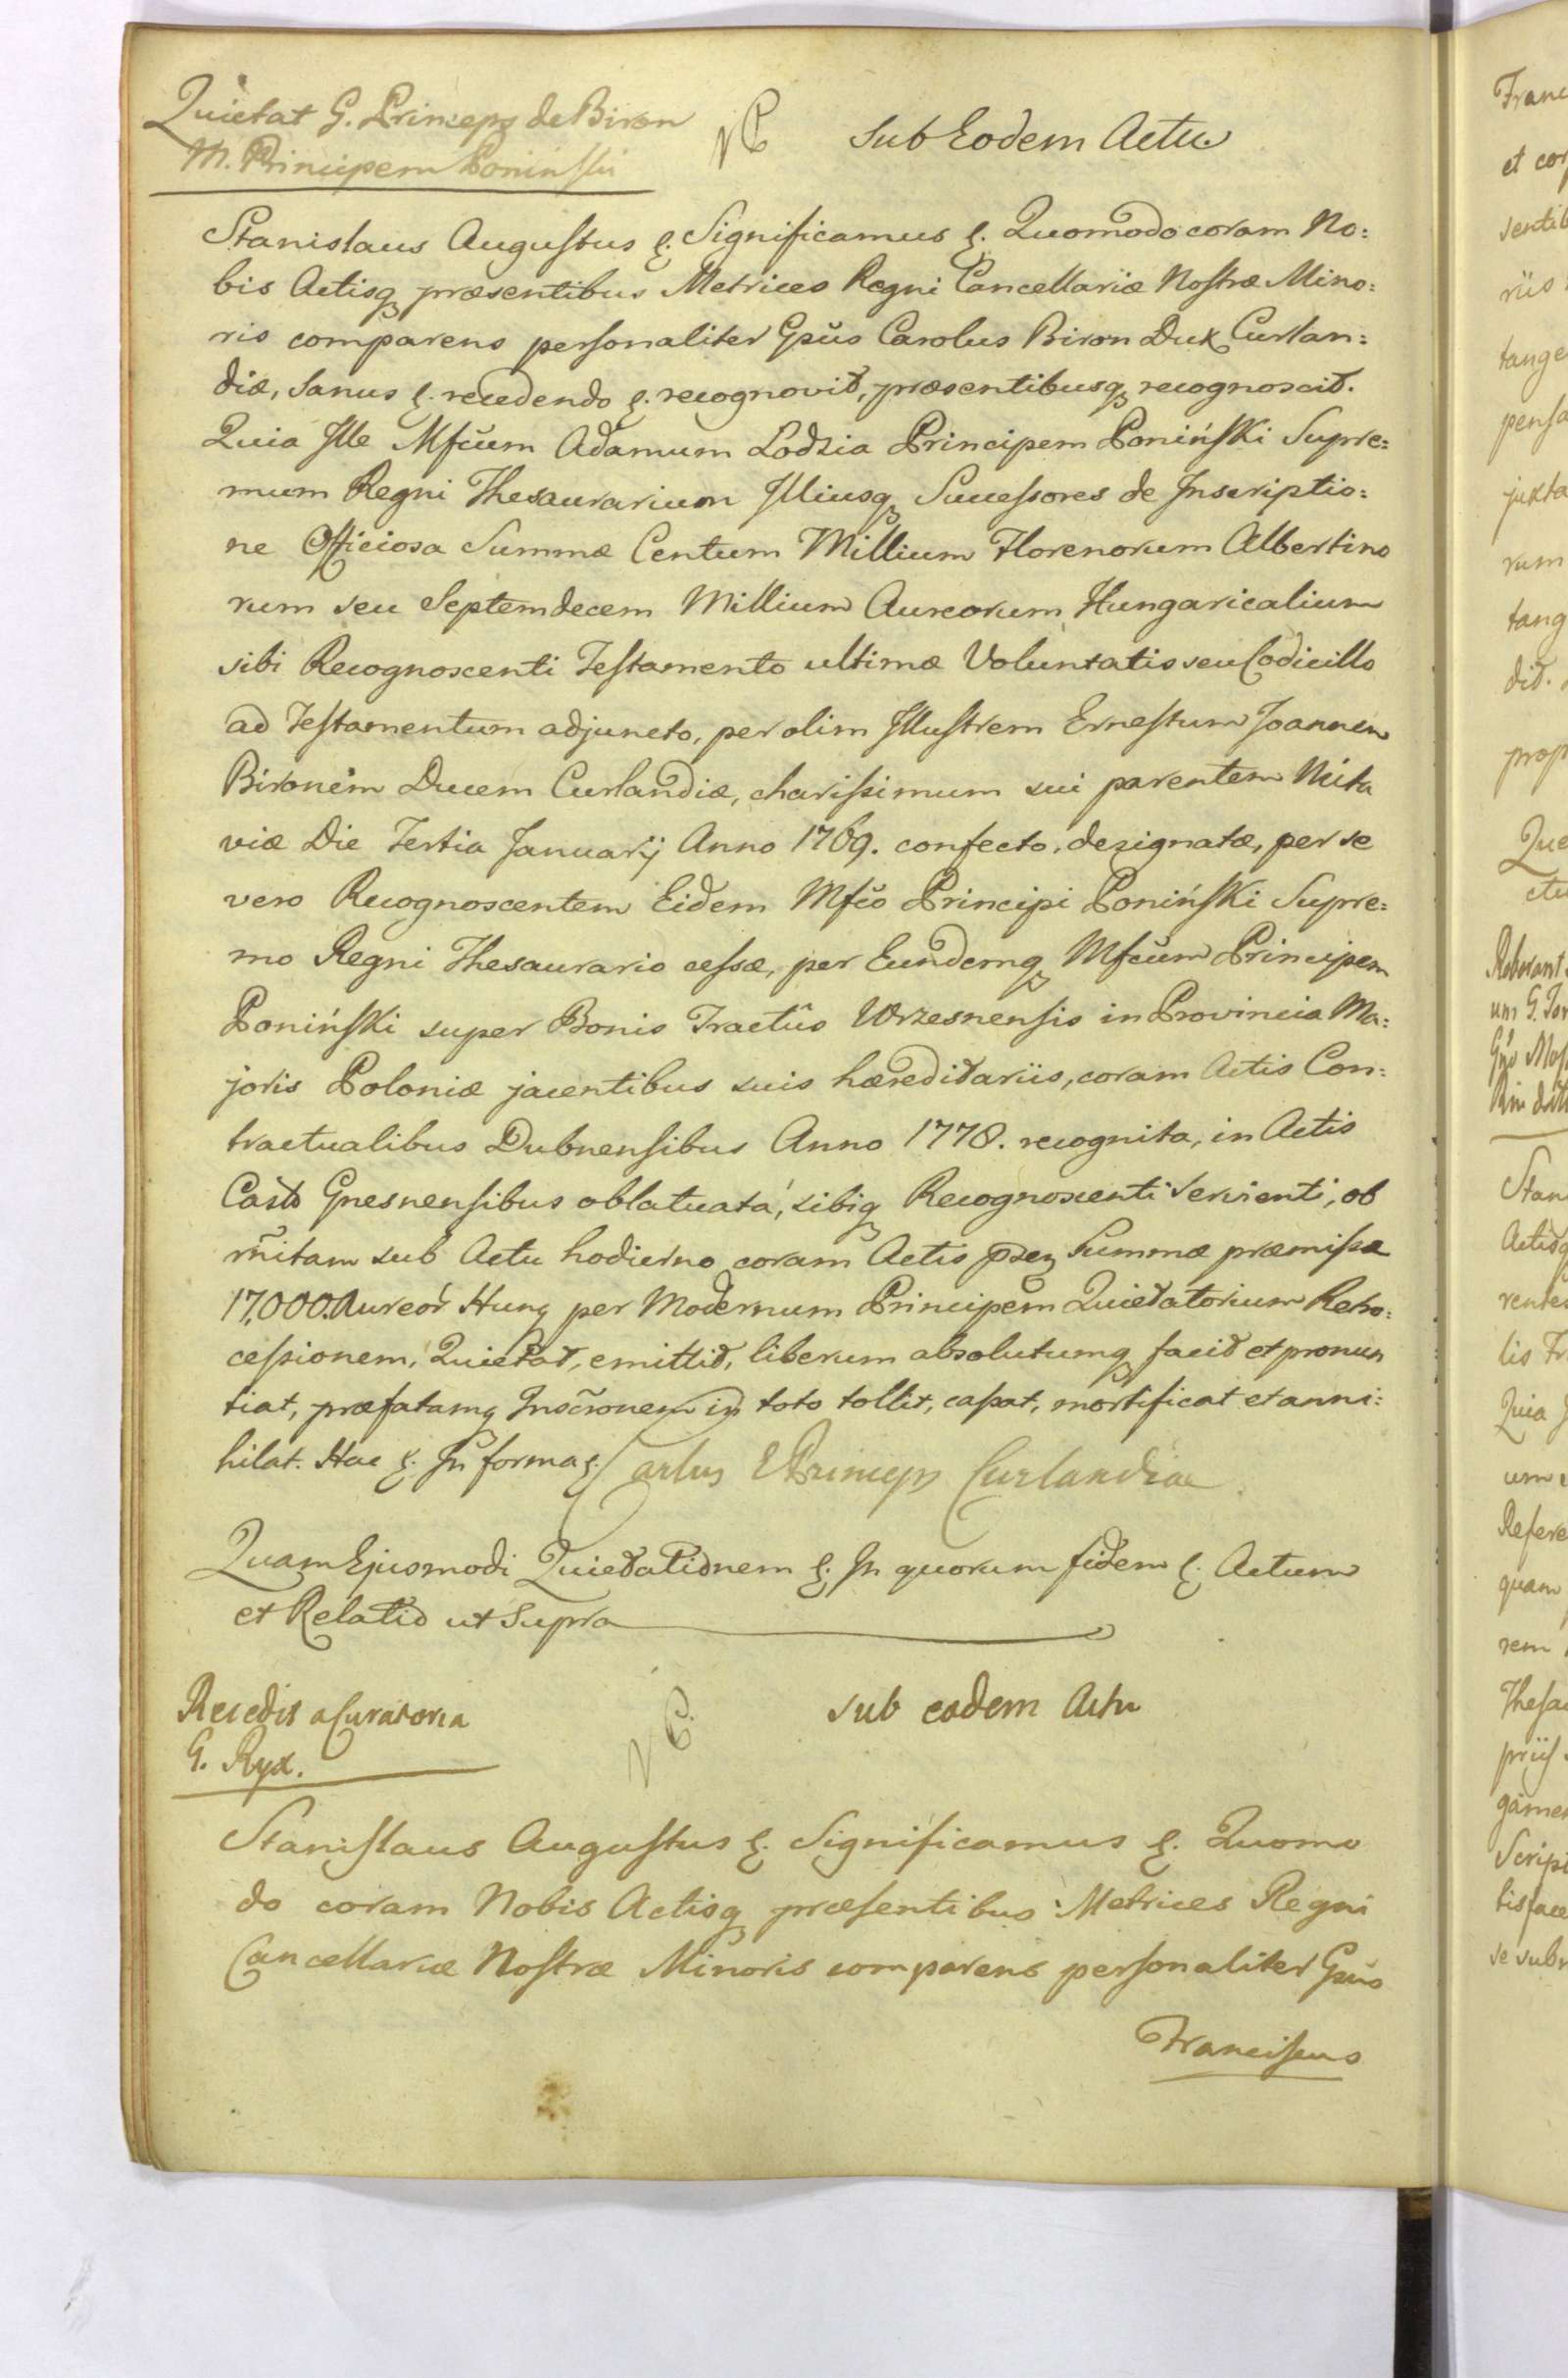 Quietat G. Princeps de Biron
M. Principem Poninski
Sub Eodem Actu.
Stanislaus Augustus &. Significamus &. Quomodo coram No:
bis Actisq præsentibus Metrices Regni Cancellariæ Nostræ Mino:
ris comparens personaliter Gnũs Carolus Biron Dux Curlan:
diæ, Sanus &. recedendo &. recognovit, præsentibusq recognoscit.
Quia Ille Mfcum Adamum Lodzia Principem Poniński Supre:
mum Regni Thesaurarium Illiusq Successores de Inscriptio:
ne Officiosa Summæ Centum Millium Florenorum Albertino
rum seu Septemdecem Millium Aureorum Hungaricalium
sibi Recognoscenti Testamento ultimæ Voluntatis seu Codicillo
ad Testamentum adjuncto, per olim Illustrem Ernestum Joannem
Bironem Ducem Curlandiæ, charissimum sui parentem Mita
viæ Die Tertia Januarij Anno 1769. confecto, designatæ, per se
vero Recognoscentem Eidem Mfco Principi Poniński Supre:
mo Regni Thesaurario cessæ, per Eundemq Mfcum Principem
Poniński super Bonis Tractûs Wrzesnensis in Provincia Ma:
joris Poloniæ jacentibus suis hæreditariis, coram Actis Con:
tractualibus Dubnensibus Anno 1778. recognita, in Actis
Casts Gnesnensibus oblatuata, sibiq Recognoscenti servienti, ob
rñitam sub Actu hodierno coram Actis Summæ præmissæ
17,000. Aureor Hung per Modernum Principem Quietatorium Retro:
cessionem, Quietat, emittit, liberum absolutumq facit et pronun
tiat, præfatamq Inscronem in toto tollit, cassat, mortificat et anni:
hilat. Hac &. In forma &. Carlus E Princeps Curlandiae.
Quam Ejusmodi Quietationem &. In quorum fidem &. Actum
et Relatio ut Supra
Recedit a Curatoria
G. Ryx.
sub eodem Actu
Stanislaus Augustus &. Significamus &. Quomo
do coram Nobis Actisq præsentibus Metrices Regni
Cancellariæ Nostræ Minoris comparens personaliter Gnũs
Franciscus